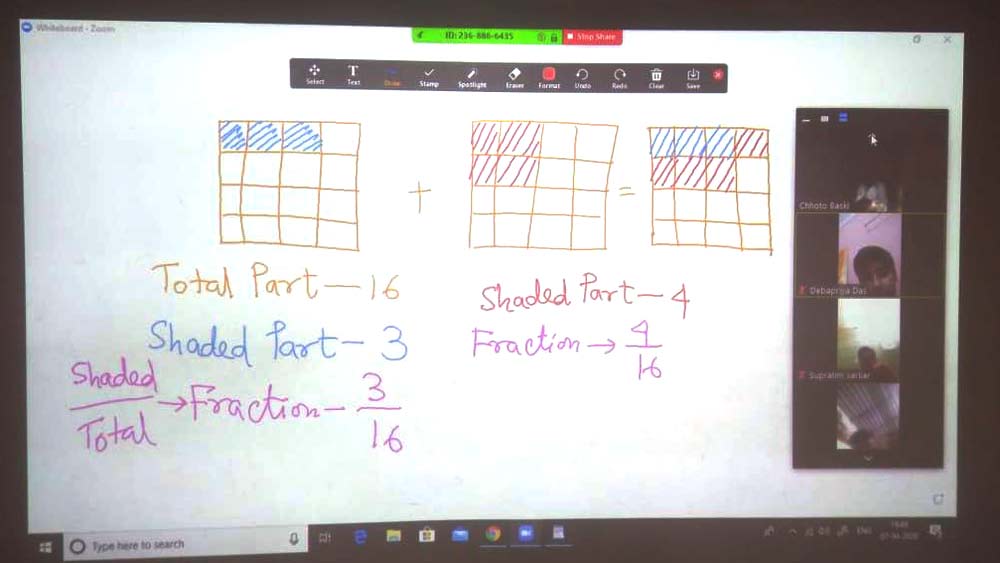 Whiteboard - Zoom
ID: 236-886-6435
Stop Share
Select Text Draw Stamp Spotlight Eraser Format Undo Redo Clear Save
+ =
Total Part - 16
Shaded Part - 3
Shaded
Total
→ Fraction - 3
16
Shaded Part - 4
Fraction → 4
16
Chhoto Baski
Debapriya Das
Supratim sarkar
Type here to search
ENG